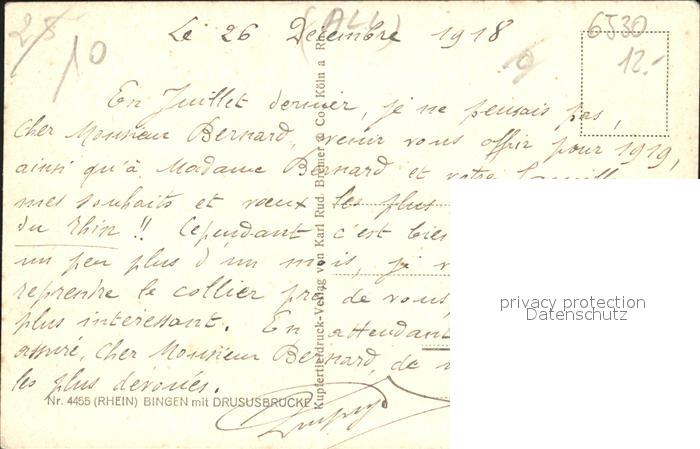 28
10
(ALL)
6530
12.-
Le 26 Décembre 1918
En Juillet dernier, je ne pensais pas,
Cher Monsieur Bernard, venir vous offrir pour 1919,
ainsi qu'à Madame Bernard et votre
mes souhaits et vœux les plus
du Rhin !! Cependant c'est bien
un peu plus d'un mois, je
reprendre le collier près de vous,
plus intéressant. En attendant
assuré, Cher Monsieur Bernard, de
les plus dévoués.
Nr. 4455 (RHEIN) BINGEN mit DRUSUSBRÜCKE
Kupfertiefdruck-Verlag von Karl Rud. Bremer & Co. Köln a Rh
privacy protection
Datenschutz